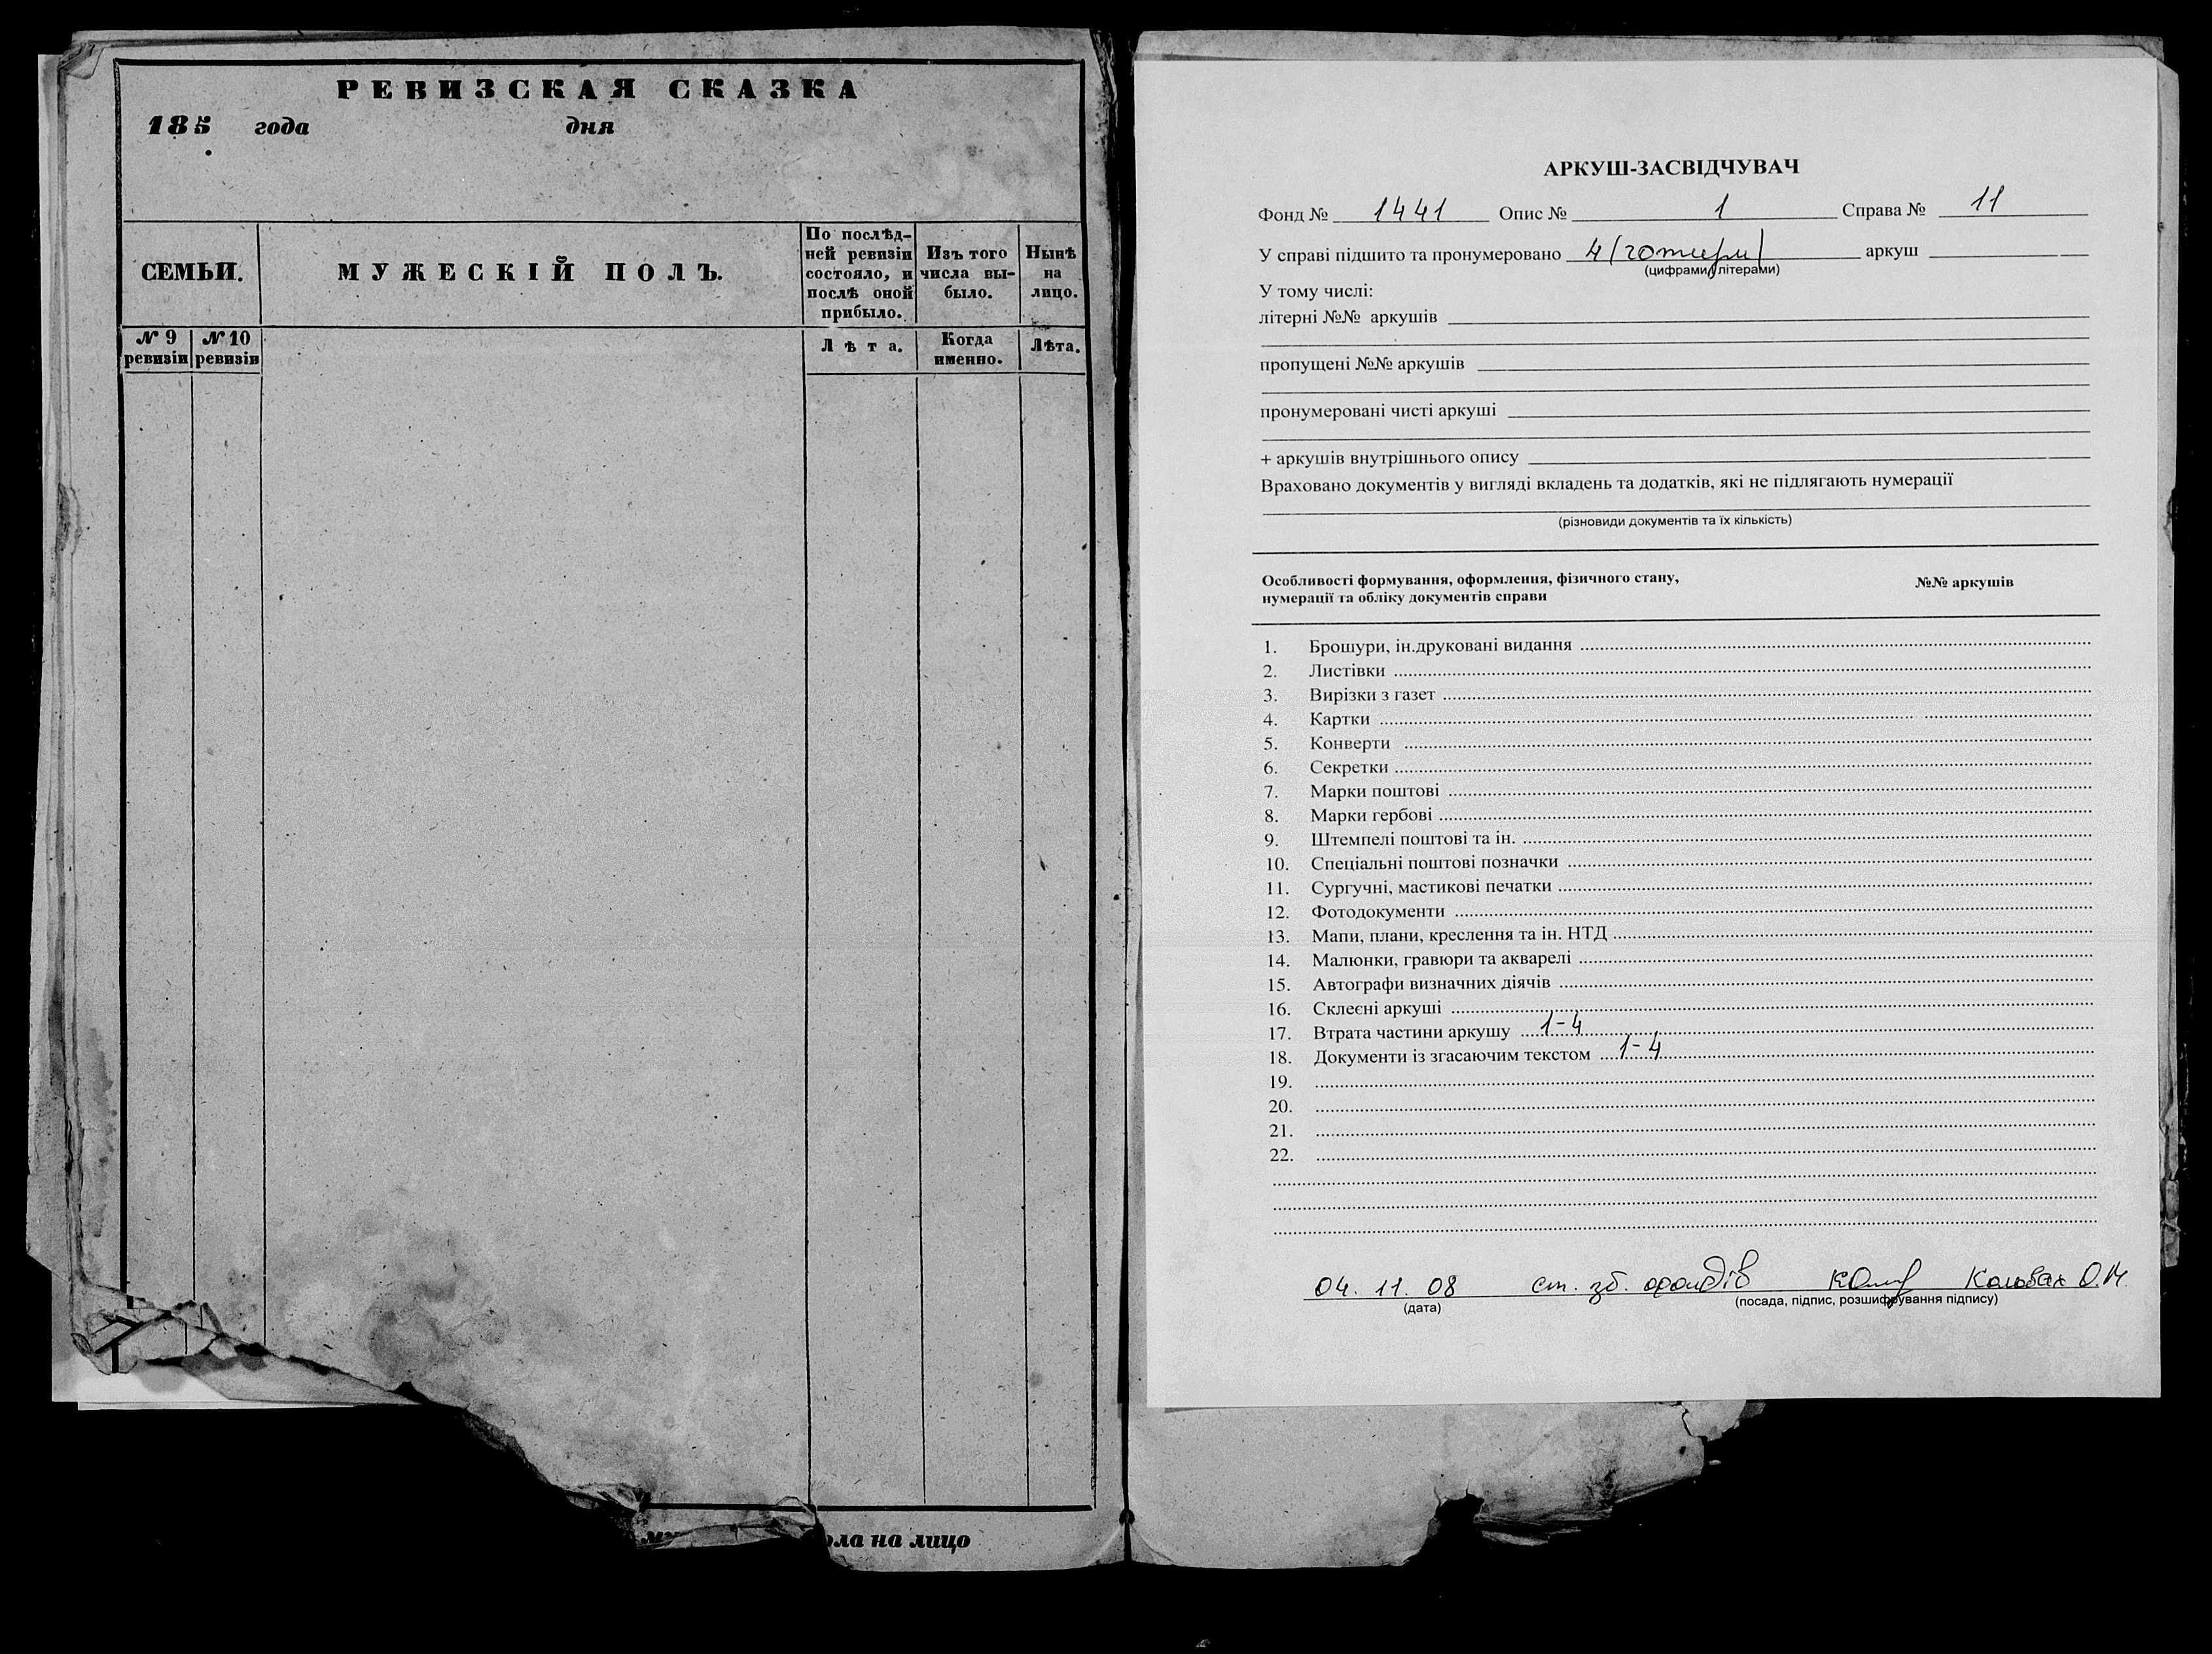 РЕВИЗСКАЯ СКАЗКА
185 года дня
СЕМЬИ.
МУЖЕСКІЙ ПОЛЪ.
По послѣд-
ней ревизіи
состояло, и
послѣ оной
прибыло.
Изъ того
числа вы-
было.
Нынѣ
на
лицо.
№ 9
ревизіи
№ 10
ревизіи
Лѣта.
Когда
именно.
Лѣта.
ола на лицо
АРКУШ-ЗАСВІДЧУВАЧ
Фонд № 1441 Опис № 1 Справа № 11
У справі підшито та пронумеровано 4 (чотири) аркуш
(цифрами, літерами)
У тому числі:
літерні №№ аркушів
пропущені №№ аркушів
пронумеровані чисті аркуші
+ аркушів внутрішнього опису
Враховано документів у вигляді вкладень та додатків, які не підлягають нумерації
(різновиди документів та їх кількість)
Особливості формування, оформлення, фізичного стану,
нумерації та обліку документів справи
№№ аркушів
1. Брошури, ін.друковані видання
2. Листівки
3. Вирізки з газет
4. Картки
5. Конверти
6. Секретки
7. Марки поштові
8. Марки гербові
9. Штемпелі поштові та ін.
10. Спеціальні поштові позначки
11. Сургучні, мастикові печатки
12. Фотодокументи
13. Мапи, плани, креслення та ін. НТД
14. Малюнки, гравюри та акварелі
15. Автографи визначних діячів
16. Склеєні аркуші
17. Втрата частини аркушу 1-4
18. Документи із згасаючим текстом 1-4
19.
20.
21.
22.
04.11.08 ст. зб. фондів О.М.
(дата)
(посада, підпис, розшифрування підпису)